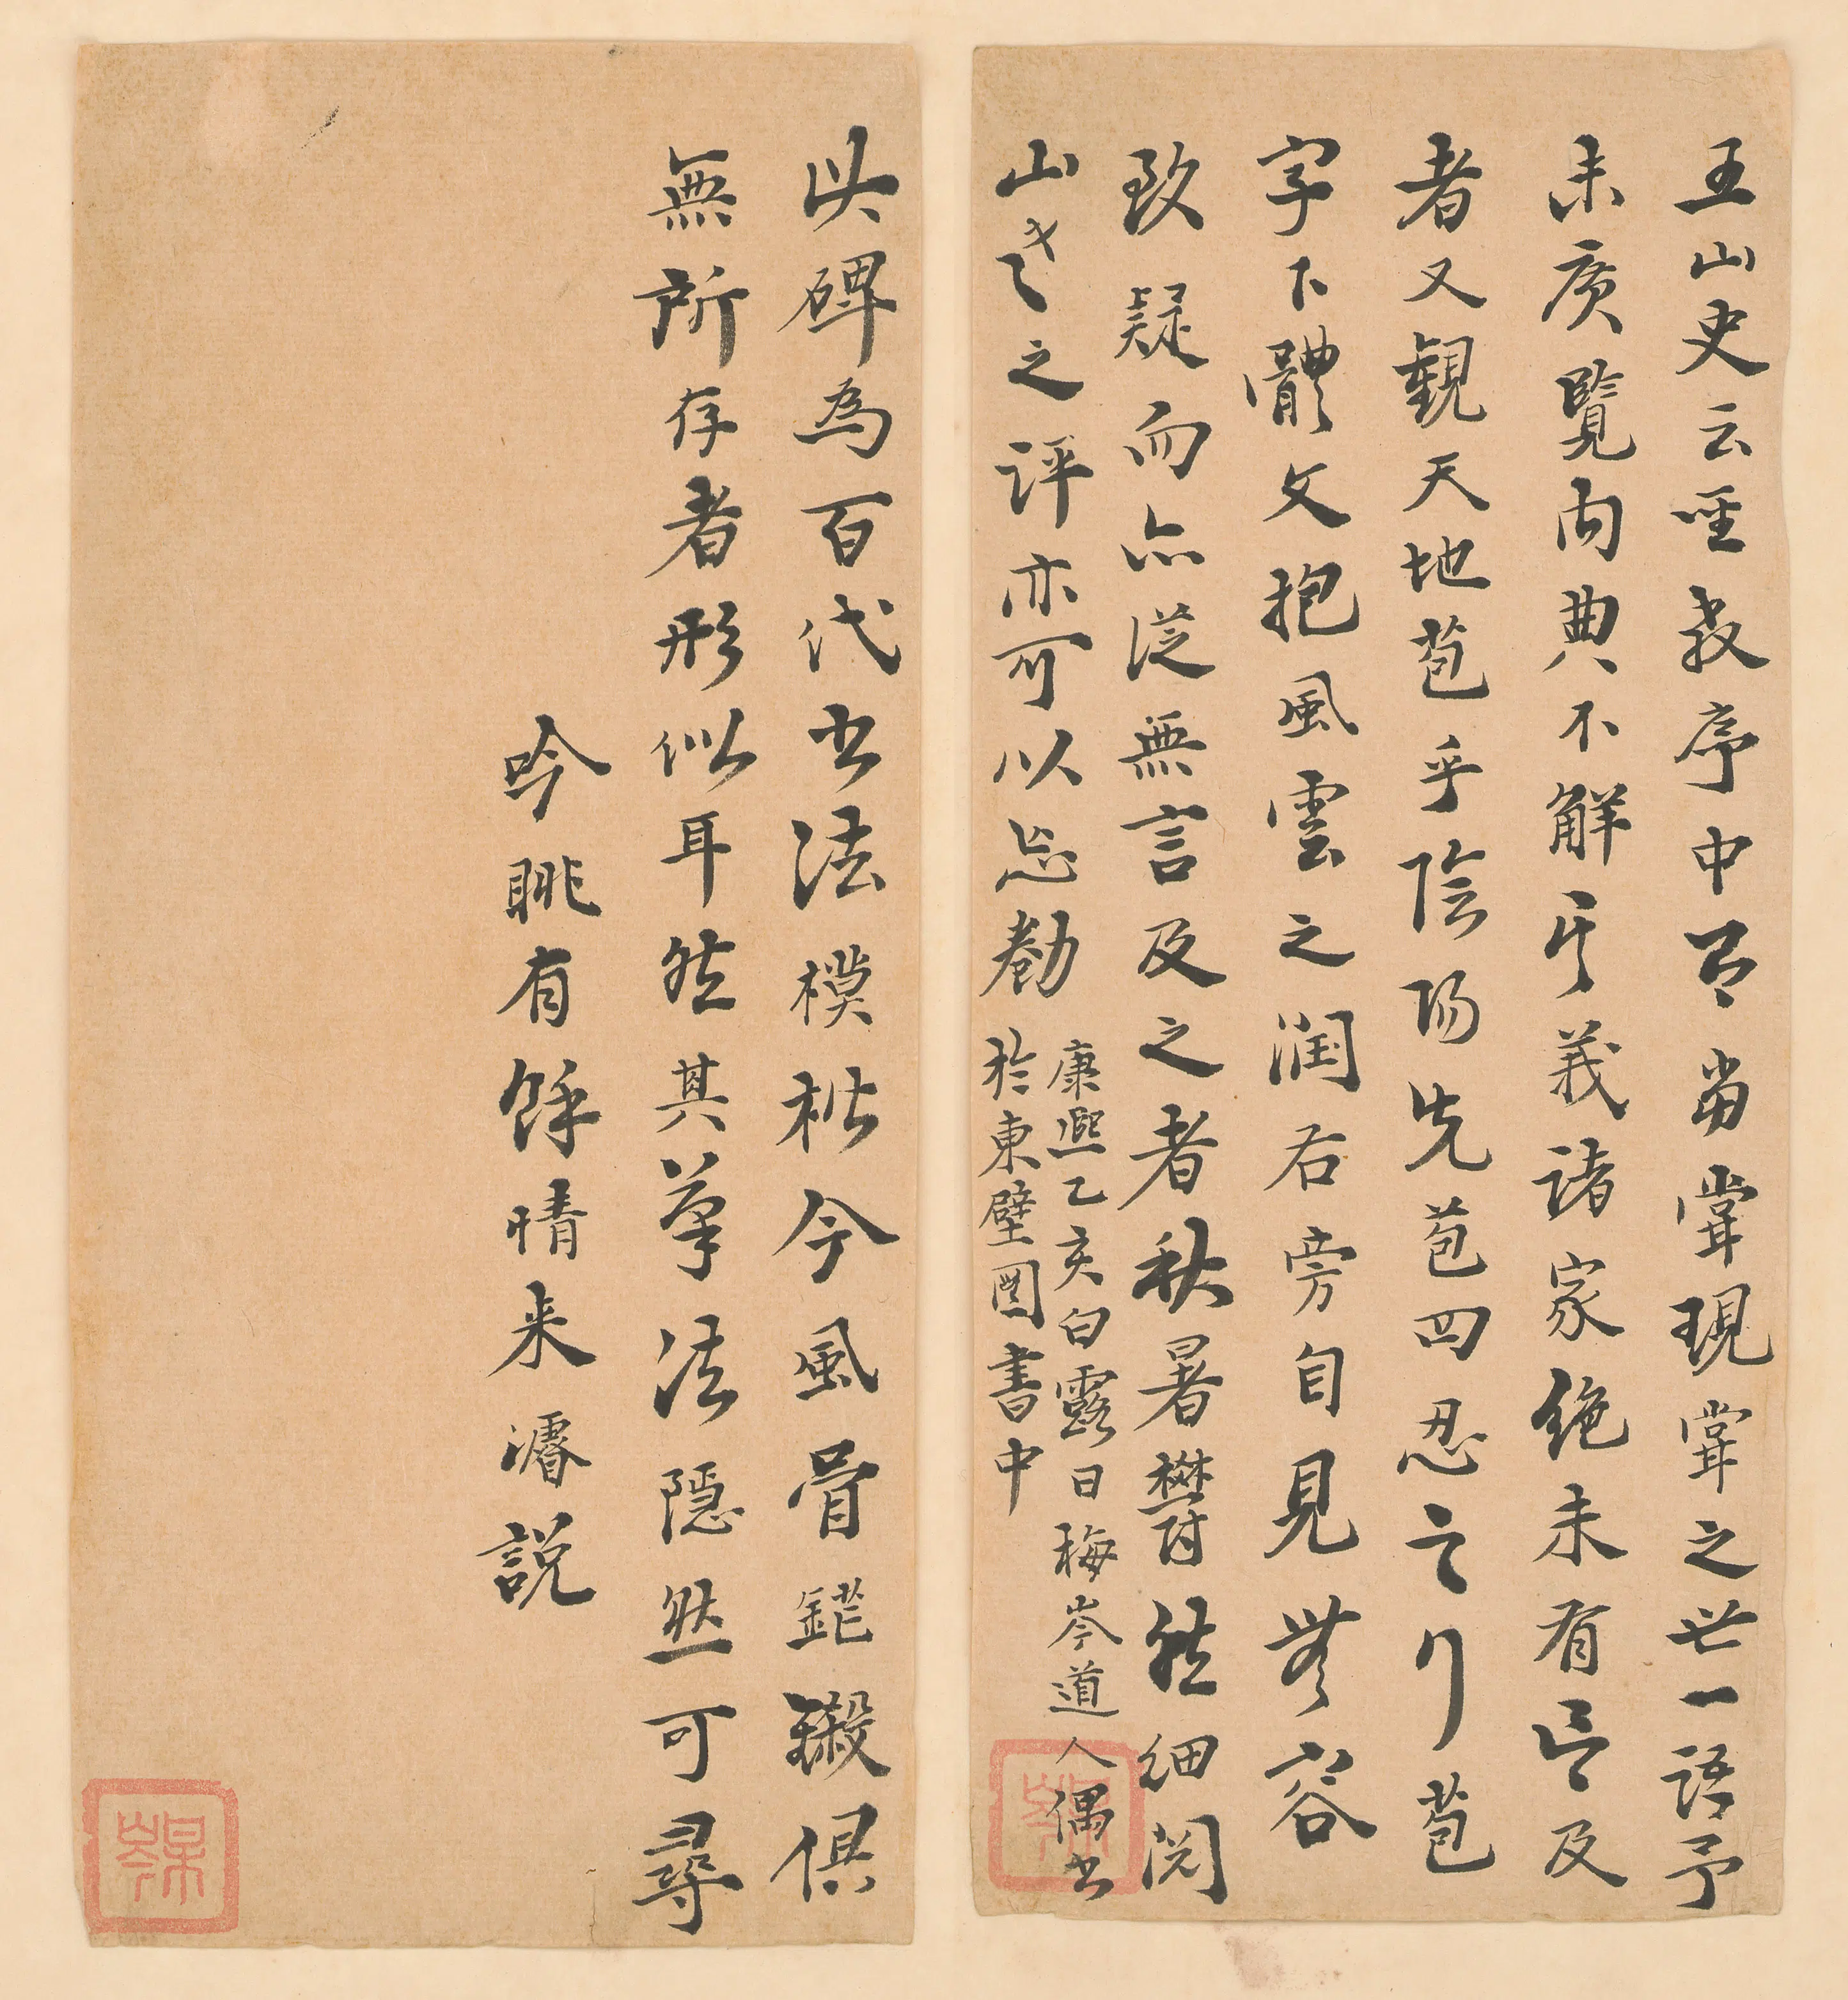 王山史云聖教序中早當常現常之世一語予
未廣覽内典不解其義諸家絶未有言及
者又觀天地苞乎陰陽先苞四忍之行苞
字下體文抱風雲之润右旁自見無容
致疑而亦從無言及之者秋暑鬱蒸細閲
山老之評亦可以忘勌
康熙乙亥白露日梅岑道人偶书
於東壁圖書中
此碑為百代书法模楷今風骨鋩鎩俱
無所存者形似耳然其筆法隱然可尋
吟眺有餘情来濬説
梅岑
梅岑